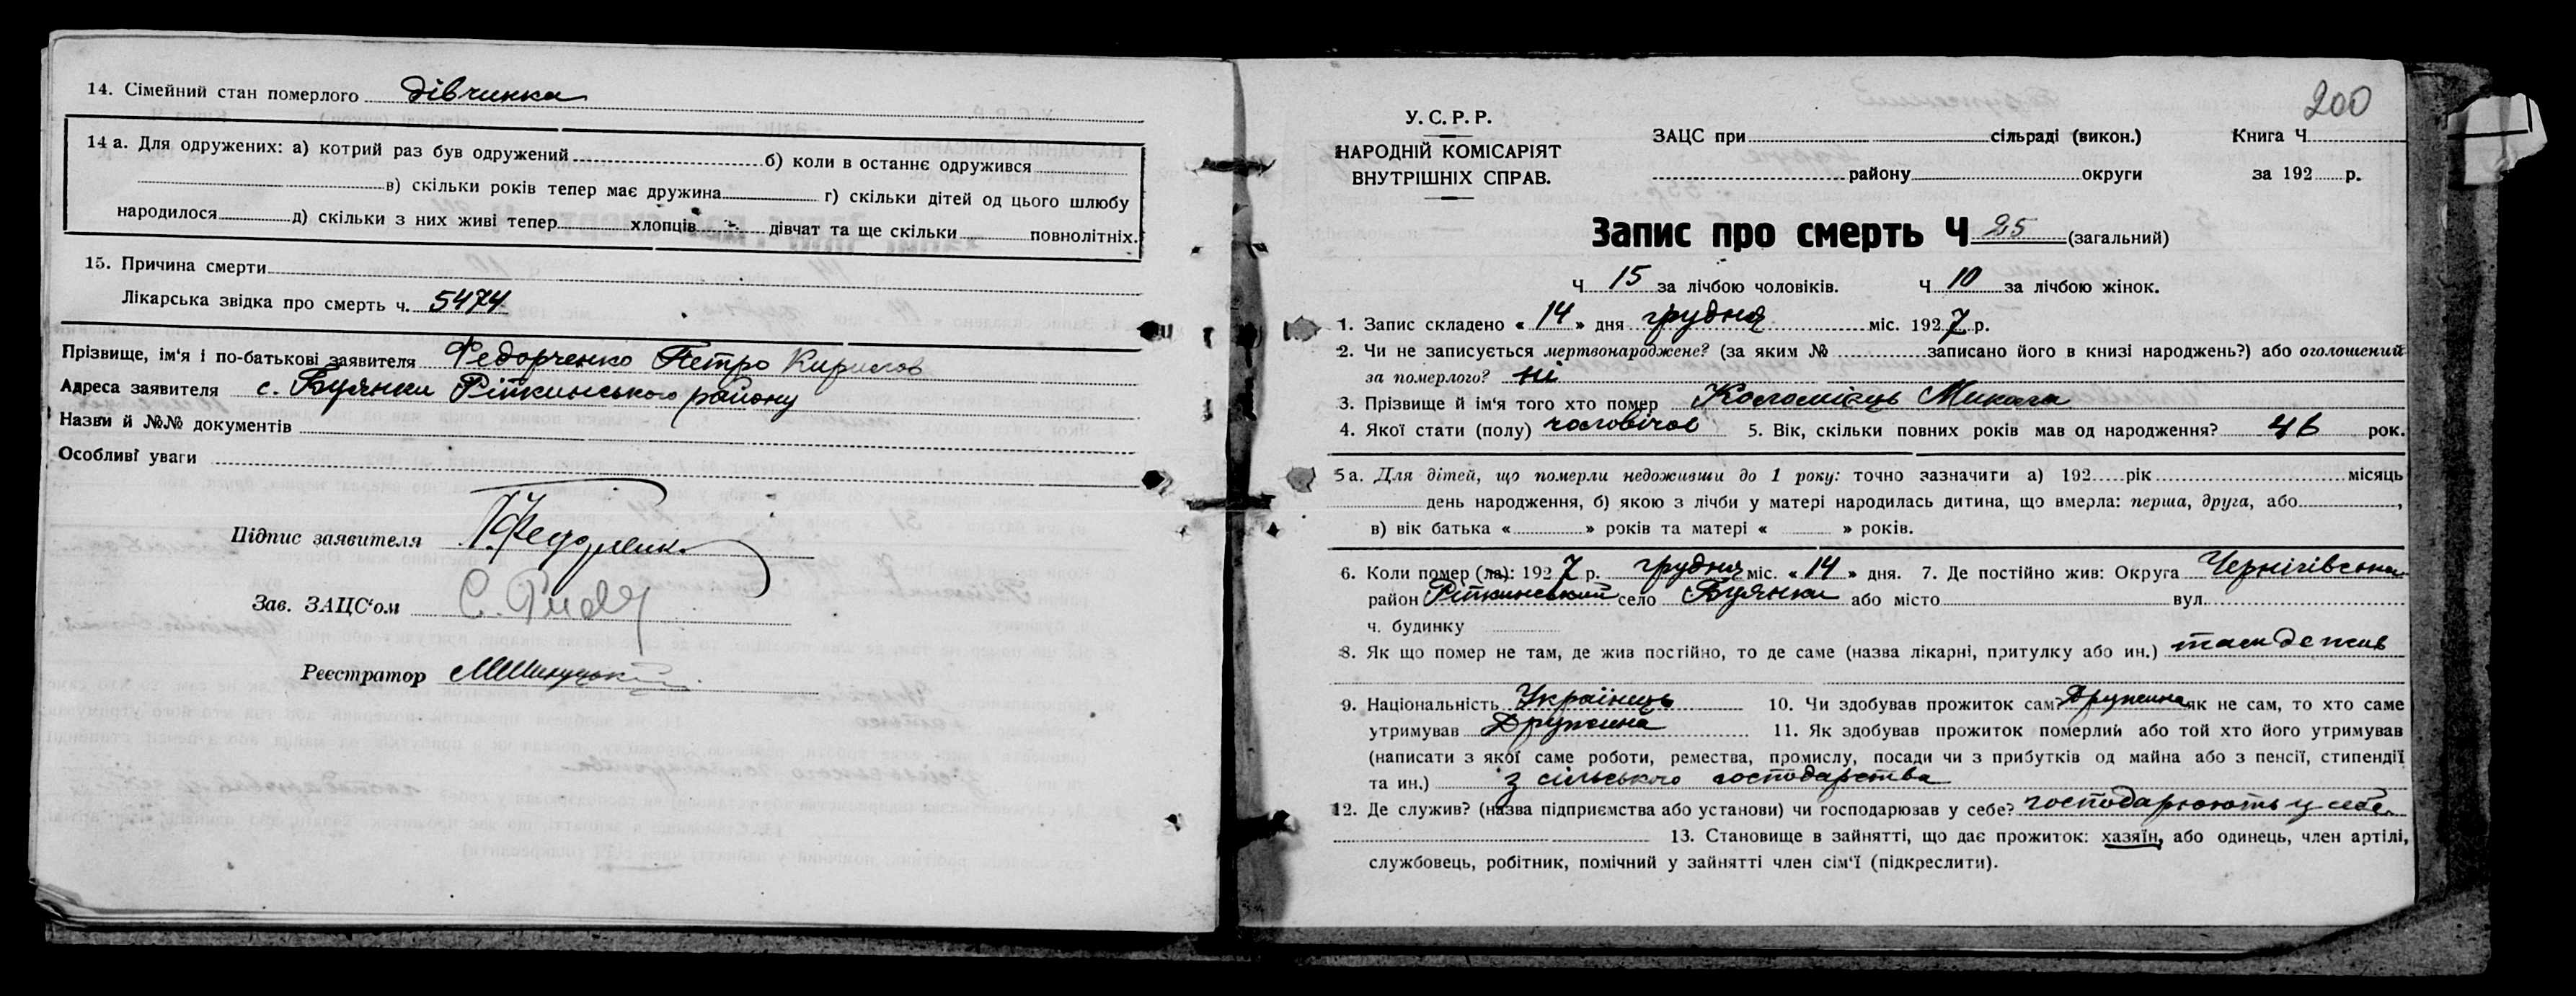 14. Сімейний стан померлого дівчинка
14 а. Для одружених: а) котрий раз був одружений б) коли в останнє одружився
в) скільки років тепер має дружина г) скільки дітей од цього шлюбу
народилося д) скільки з них живі тепер хлопців дівчат та ще скільки повнолітніх.
15. Причина смерти
Лікарська звідка про смерть ч. 5474
Прізвище, ім'я і по-батькові заявителя Федорченко Петро Кирилов
Адреса заявителя с. Буянки Ріпкинського району
Назви й №№ документів
Особливі уваги
Підпис заявителя П. Федорченко
Зав. ЗАЦС'ом
Реєстратор
200
У. С. Р. Р.
НАРОДНІЙ КОМІСАРІЯТ
ВНУТРІШНІХ СПРАВ.
ЗАЦС при сільраді (викон.)
району округи
Книга Ч.
за 192 р.
Запис про смерть Ч 25 (загальний)
Ч 15 за лічбою чоловіків. Ч 10 за лічбою жінок.
1. Запис складено « 14 » дня грудня міс. 1927 р.
2. Чи не записується мертвонароджене? (за яким № записано його в книзі народжень?) або оголошений
за померлого? ні
3. Прізвище й ім'я того хто помер Коломієць Микола
4. Якої стати (полу) чоловічої 5. Вік, скільки повних років мав од народження? 46 рок.
5а. Для дітей, що померли недоживши до 1 року: точно зазначити а) 192 рік місяць
день народження, б) якою з лічби у матері народилась дитина, що вмерла: перша, друга, або ,
в) вік батька « » років та матері « » років.
6. Коли помер (ла): 1927 р. грудня міс. «14» дня. 7. Де постійно жив: Округа Чернігівська
район Ріпкинський село Буянки або місто вул.
ч. будинку
8. Як що помер не там, де жив постійно, то де саме (назва лікарні, притулку або ин.) там де жив
9. Національність Українець 10. Чи здобував прожиток сам? Дружина як не сам, то хто саме
утримував Дружина 11. Як здобував прожиток померлий або той хто його утримував
(написати з якої саме роботи, ремества, промислу, посади чи з прибутків од майна або з пенсії, стипендії
та ин.) з сільського господарства
12. Де служив? (назва підприємства або установи) чи господарював у себе? господарюють у себе
13. Становище в зайнятті, що дає прожиток: хазяїн, або одинець, член артілі,
службовець, робітник, помічний у зайнятті член сім'ї (підкреслити).